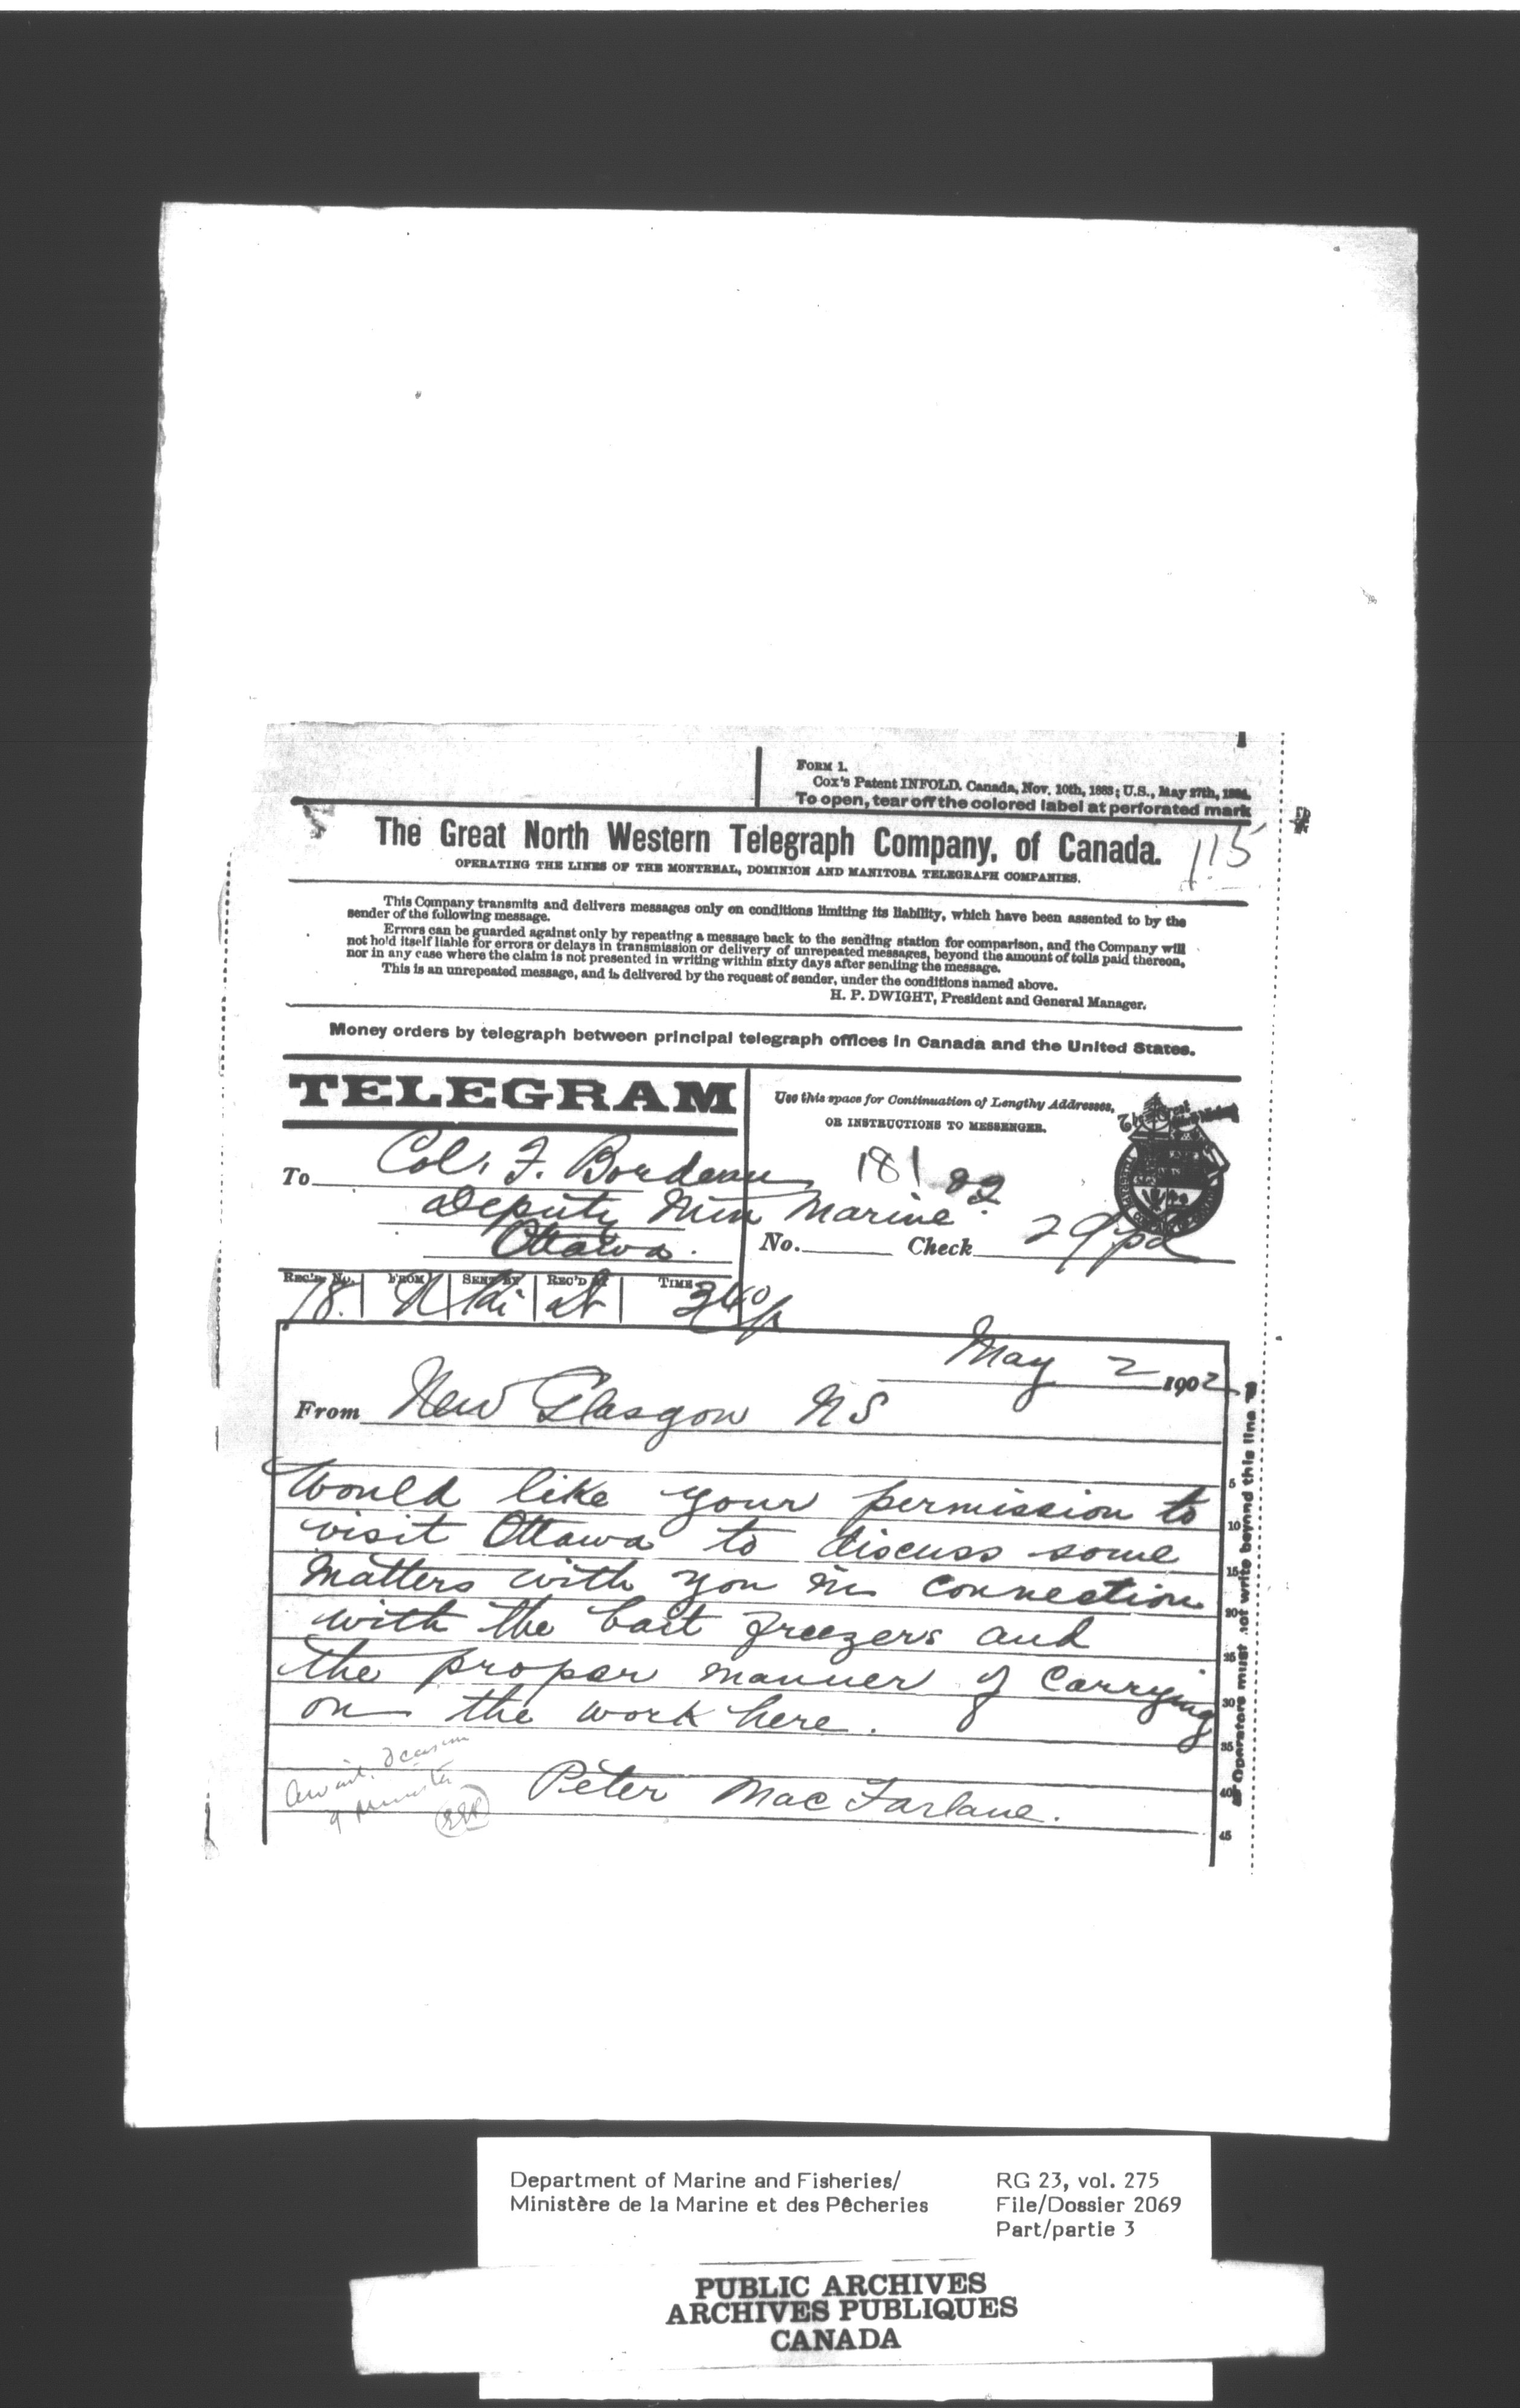 FORM 1.
Cox's Patent INFOLD. Canada, Nov. 10th, 1883; U.S., May 27th, 1884.
To open, tear off the colored label at perforated mark
The Great North Western Telegraph Company, of Canada.
115
OPERATING THE LINES OF THE MONTREAL, DOMINION AND MANITOBA TELEGRAPH COMPANIES.
This Company transmits and delivers messages only on conditions limiting its liability, which have been assented to by the
sender of the following message.
Errors can be guarded against only by repeating a message back to the sending station for comparison, and the Company will
not hold itself liable for errors or delays in transmission or delivery of unrepeated messages, beyond the amount of tolls paid thereon,
nor in any case where the claim is not presented in writing within sixty days after sending the message.
This is an unrepeated message, and is delivered by the request of sender, under the conditions named above.
H. P. DWIGHT, President and General Manager.
Money orders by telegraph between principal telegraph offices in Canada and the United States.
TELEGRAM
Use this space for Continuation of Lengthy Addresses,
OR INSTRUCTIONS TO MESSENGER.
To Col. F. Bourdeau 181
Deputy Min Marine
Ottawa.
No. Check 29 pd
REC'D No. FROM SENT BY REC'D BY TIME
78. N 340p
May 2 1902
From New Glasgow NS
Would like your permission to
visit Ottawa to discuss some
matters with you in connection
with the bait freezers and
the proper manner of carrying
on the work here.
Peter MacFarlane.
Await decision
of minister
5
10
15
20
25
30
35
40
45
Operators must not write beyond this line
Department of Marine and Fisheries/
Ministère de la Marine et des Pêcheries
RG 23, vol. 275
File/Dossier 2069
Part/partie 3
PUBLIC ARCHIVES
ARCHIVES PUBLIQUES
CANADA